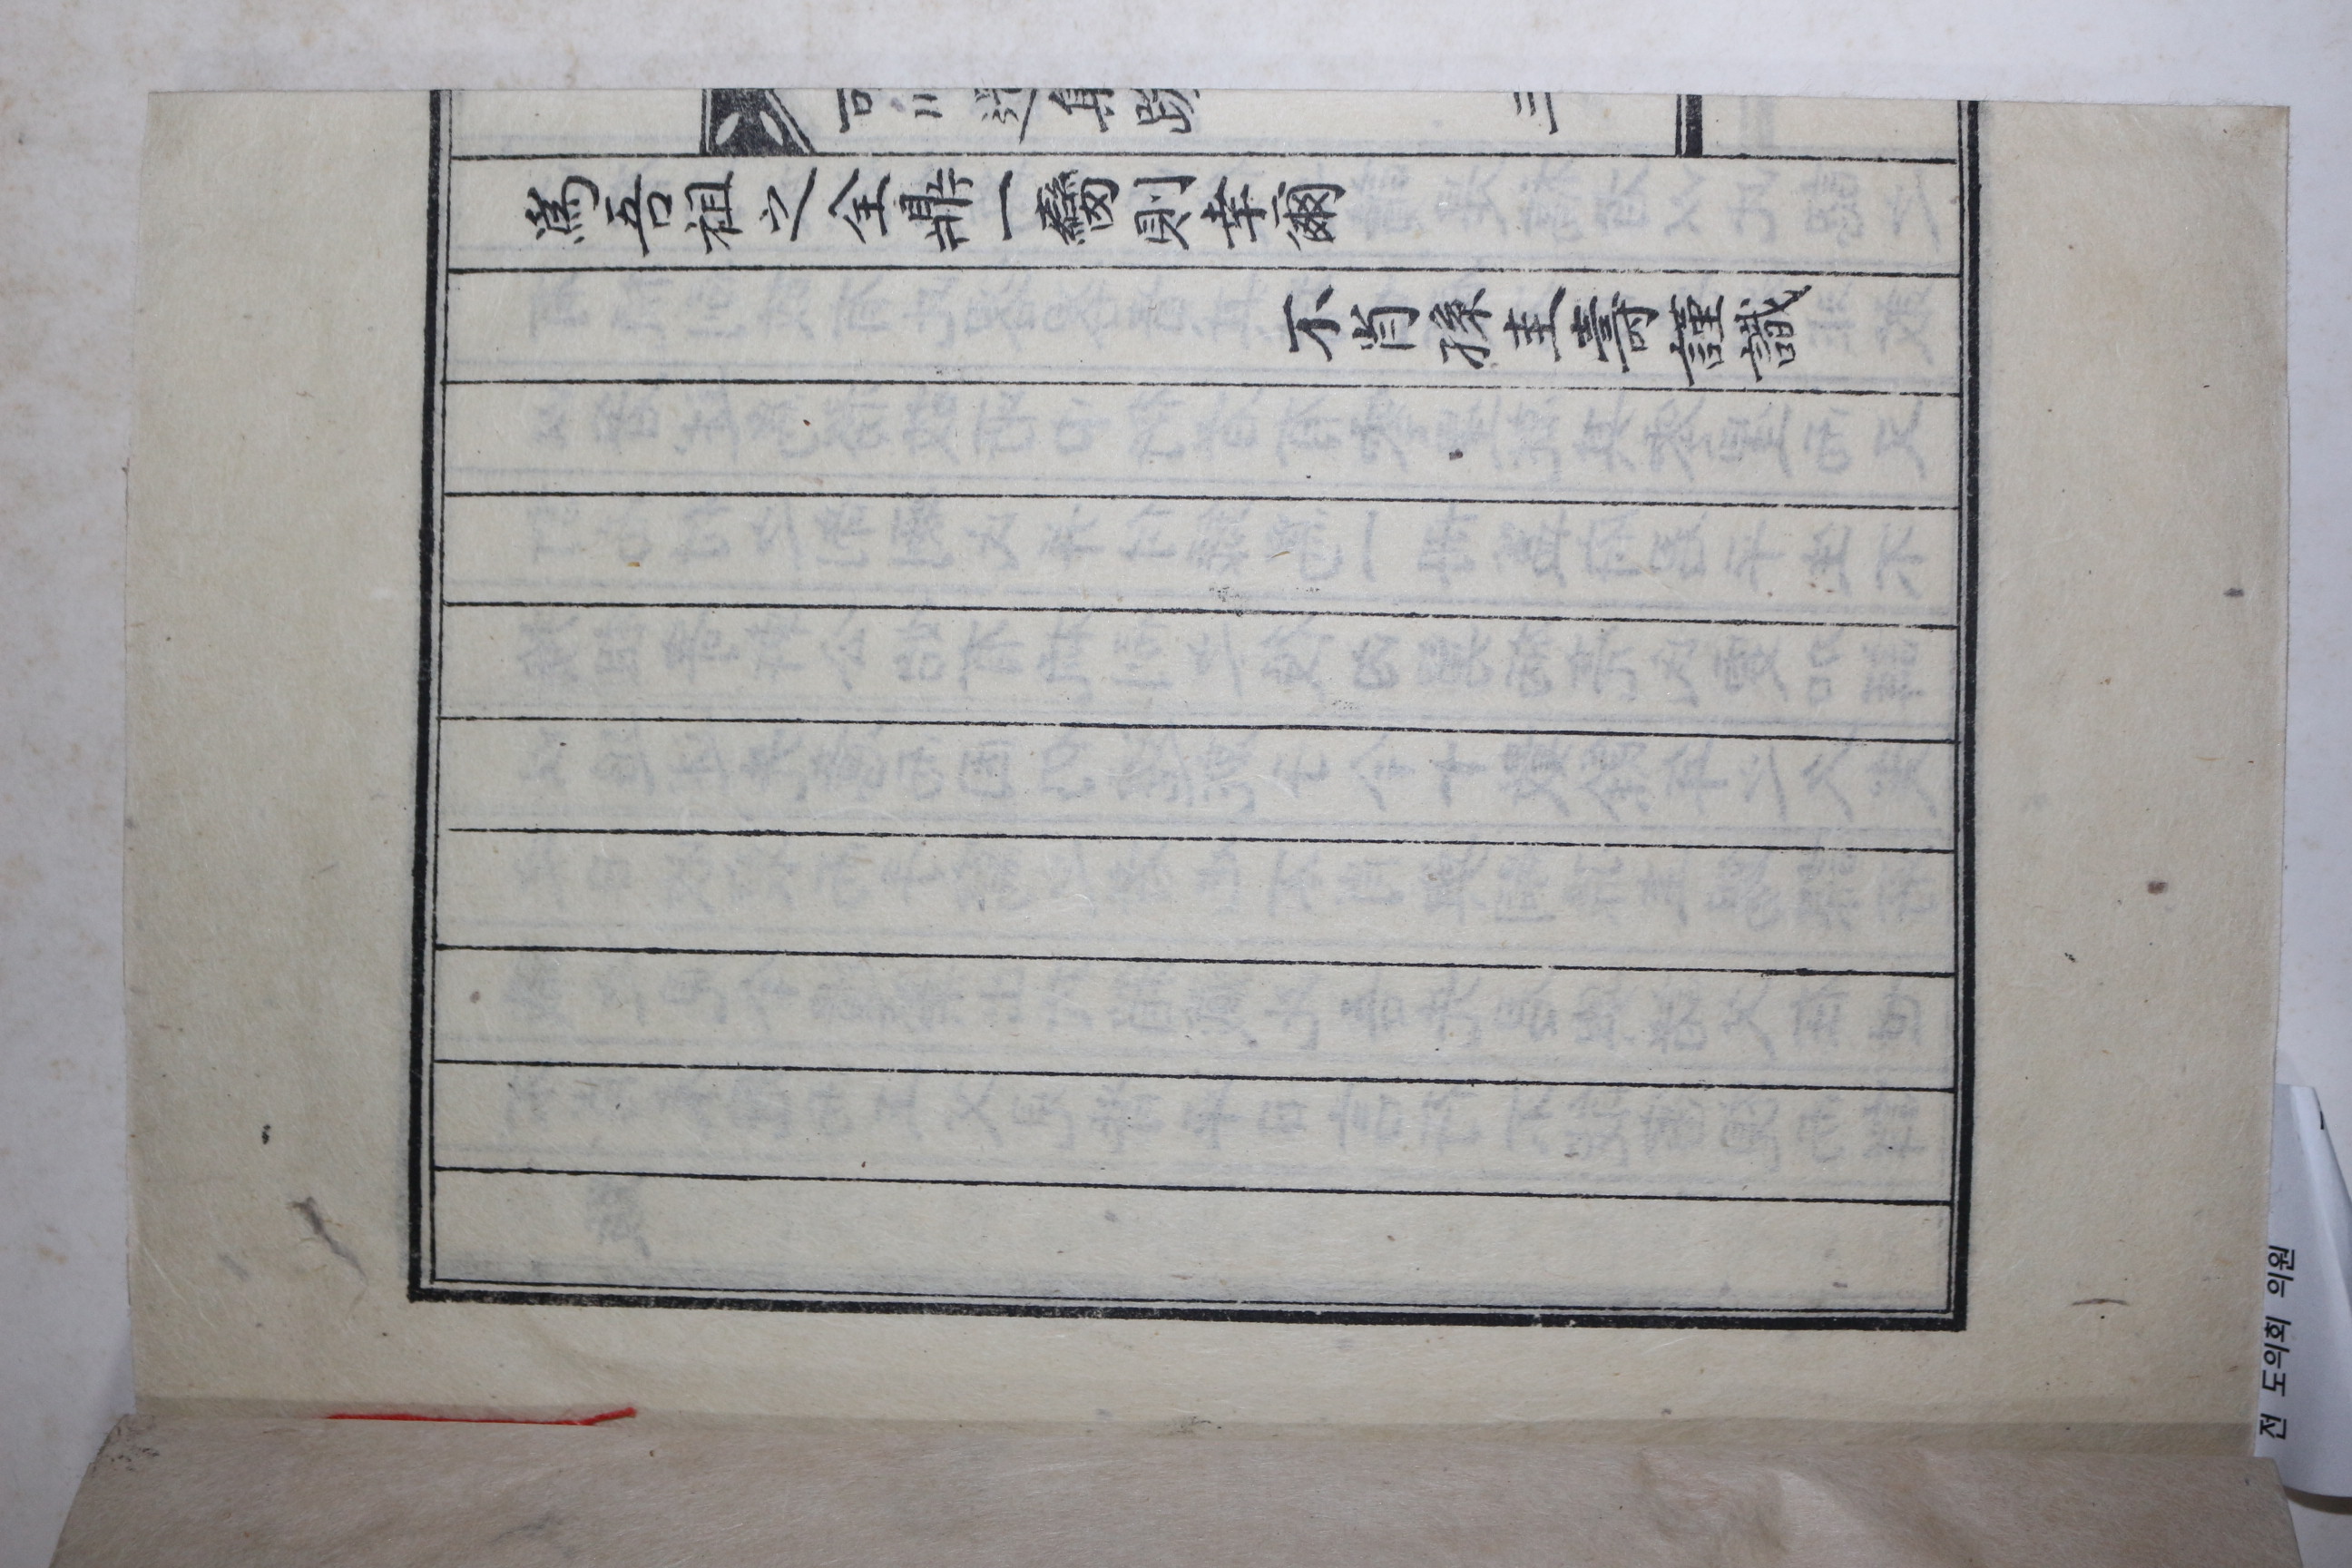 可川遺集跋 三
爲吾祖之全鼎一臠則幸爾
不肖孫圭壽謹識
전 도의회 의원